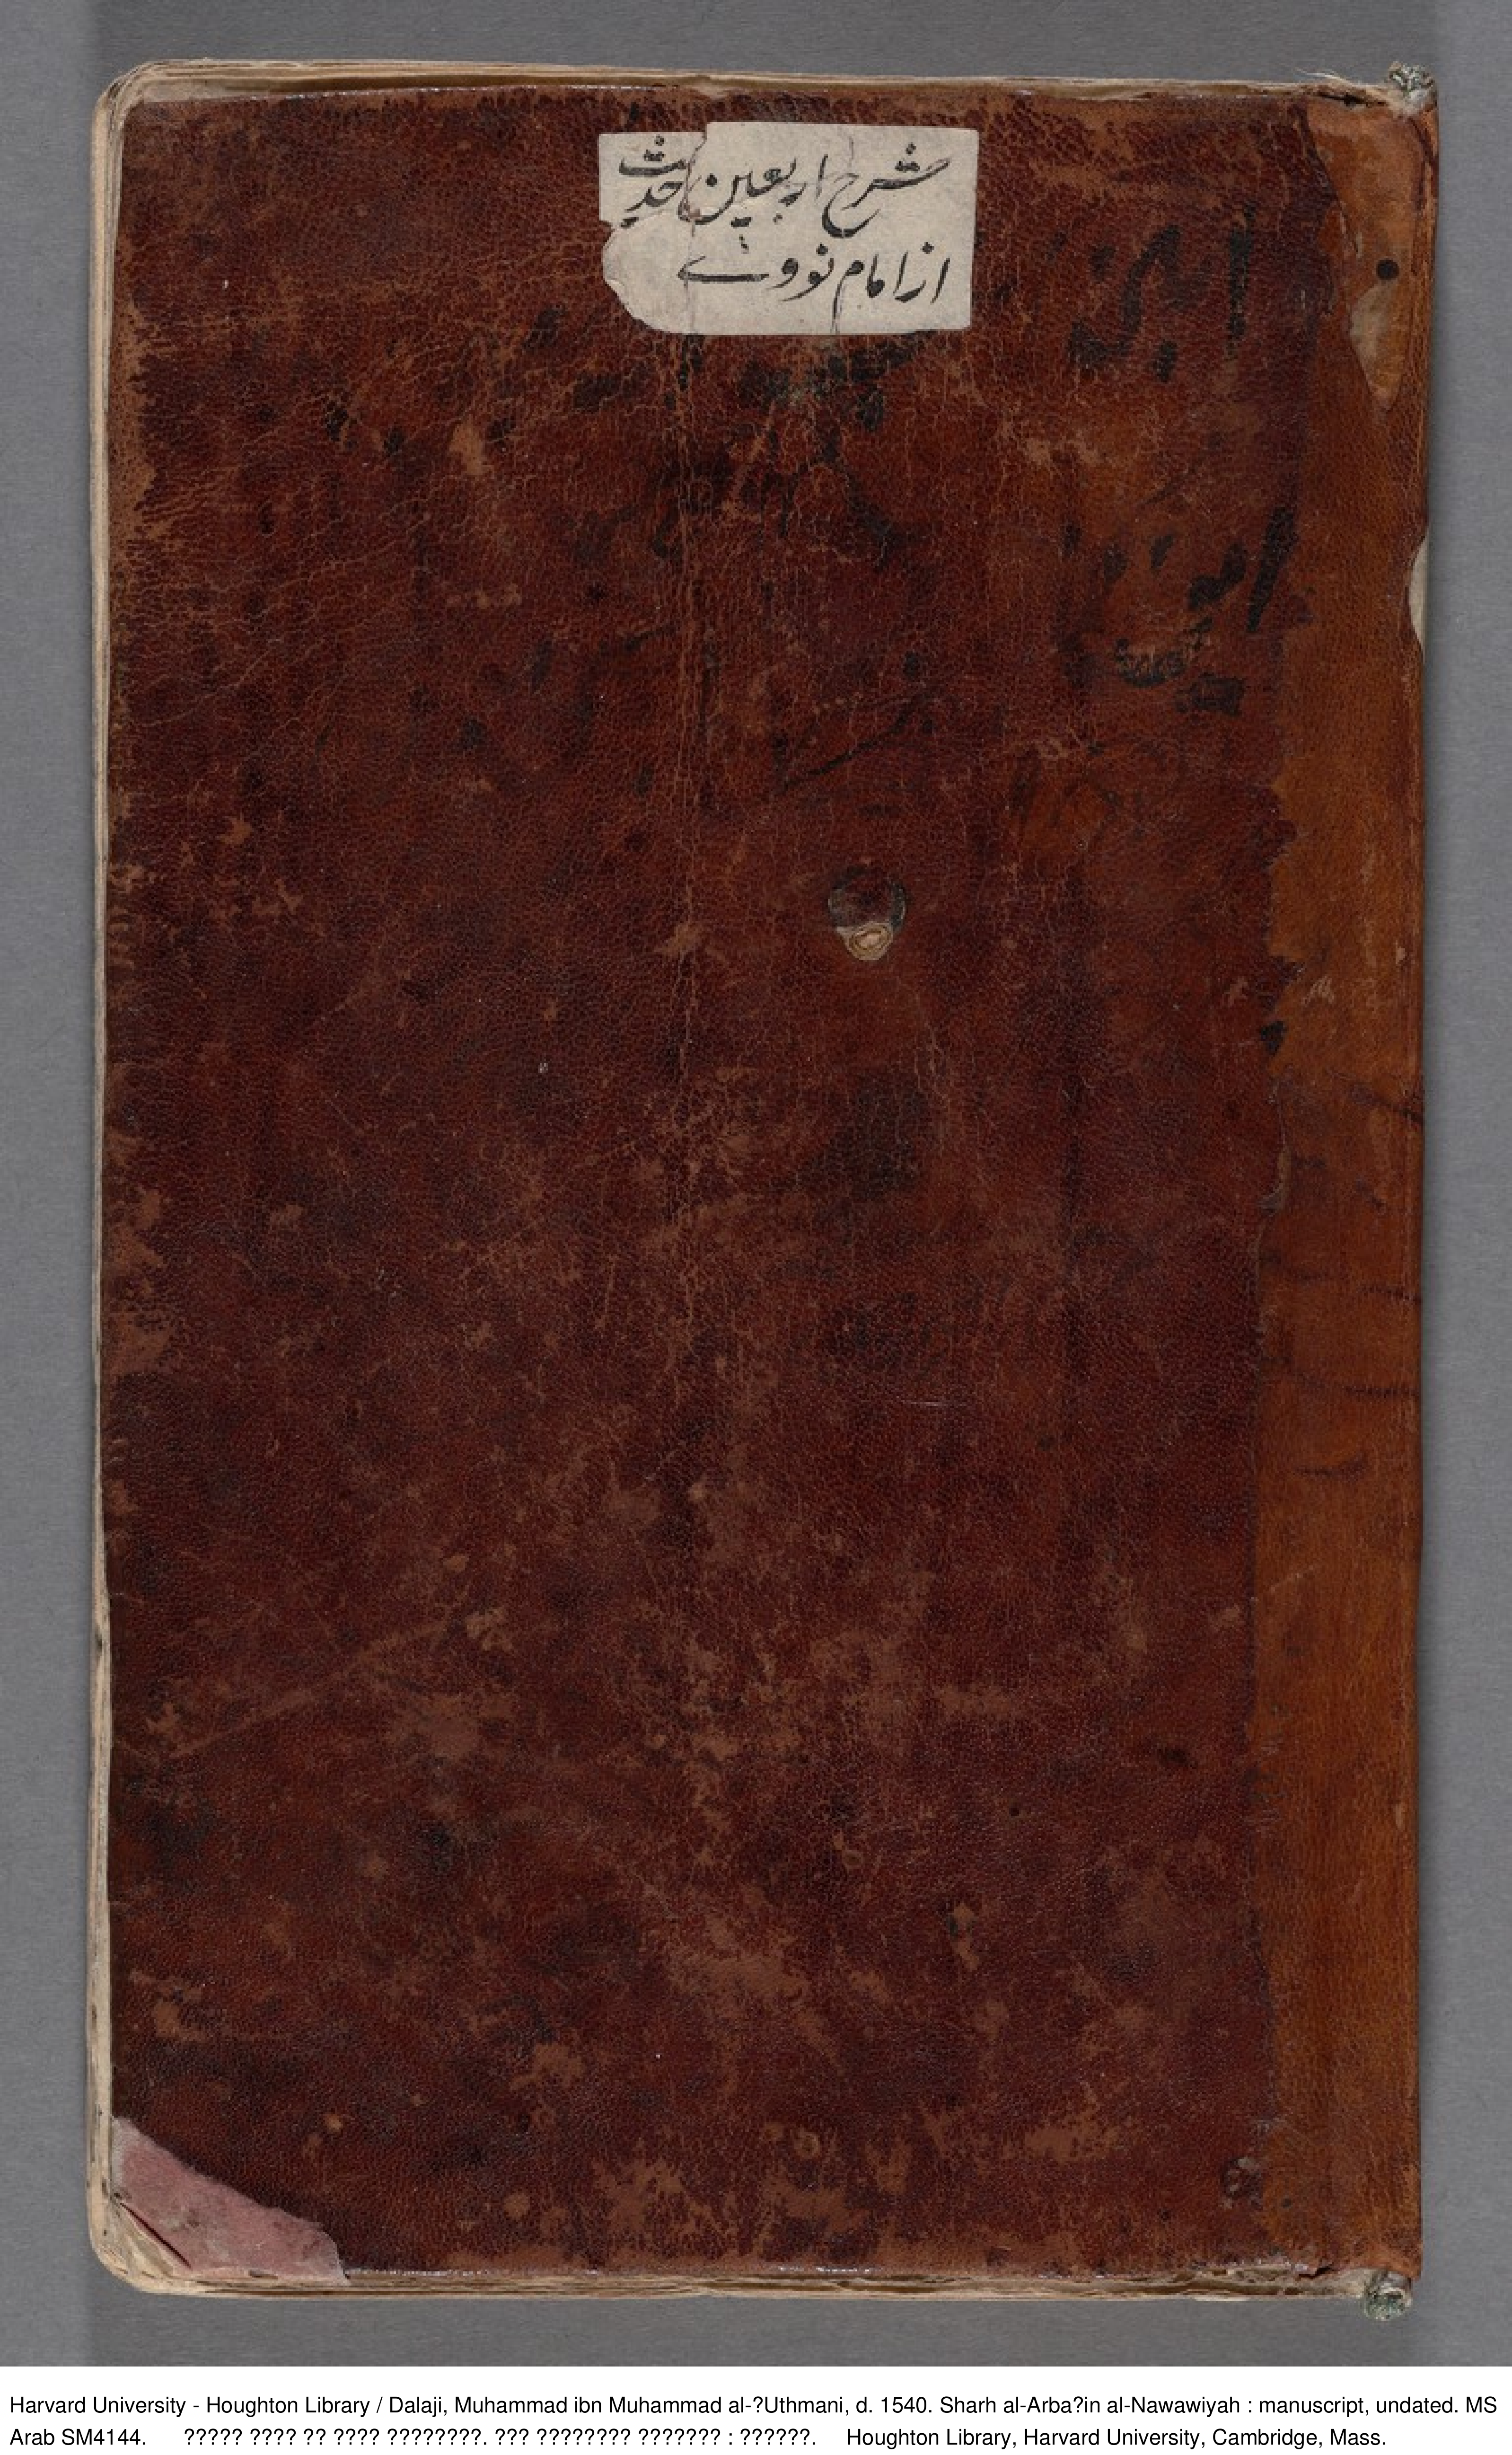 شرح اربعین حدیث
از امام نووے
Harvard University - Houghton Library / Dalaji, Muhammad ibn Muhammad al-?Uthmani, d. 1540. Sharh al-Arba?in al-Nawawiyah : manuscript, undated. MS
Arab SM4144. ????? ???? ?? ???? ????????. ??? ???????? ??????? : ??????. Houghton Library, Harvard University, Cambridge, Mass.